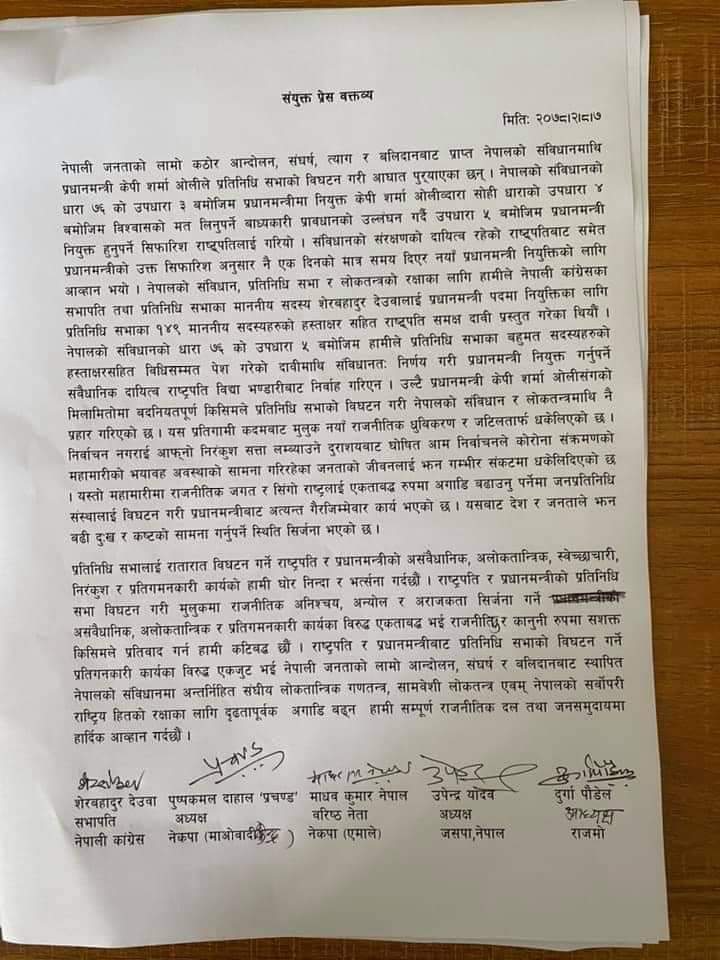 संयुक्त प्रेस वक्तव्य
मिति: २०७८।२।८।७
नेपाली जनताको लामो कठोर आन्दोलन, संघर्ष, त्याग र बलिदानबाट प्राप्त नेपालको संविधानमाथि
प्रधानमन्त्री केपी शर्मा ओलीले प्रतिनिधि सभाको विघटन गरी आघात पुर्‍याएका छन् । नेपालको संविधानको
धारा ७६ को उपधारा ३ बमोजिम प्रधानमन्त्रीमा नियुक्त केपी शर्मा ओलीव्दारा सोही धाराको उपधारा ४
बमोजिम विश्वासको मत लिनुपर्ने बाध्यकारी प्रावधानको उल्लंघन गर्दै उपधारा ५ बमोजिम प्रधानमन्त्री
नियुक्त हुनुपर्ने सिफारिश राष्ट्रपतिलाई गरियो । संविधानको संरक्षणको दायित्व रहेको राष्ट्रपतिबाट समेत
प्रधानमन्त्रीको उक्त सिफारिश अनुसार नै एक दिनको मात्र समय दिएर नयाँ प्रधानमन्त्री नियुक्तिको लागि
आव्हान भयो । नेपालको संविधान, प्रतिनिधि सभा र लोकतन्त्रको रक्षाका लागि हामीले नेपाली कांग्रेसका
सभापति तथा प्रतिनिधि सभाका माननीय सदस्य शेरबहादुर देउवालाई प्रधानमन्त्री पदमा नियुक्तिका लागि
प्रतिनिधि सभाका १४९ माननीय सदस्यहरुको हस्ताक्षर सहित राष्ट्रपति समक्ष दावी प्रस्तुत गरेका थियौं ।
नेपालको संविधानको धारा ७६ को उपधारा ५ बमोजिम हामीले प्रतिनिधि सभाका बहुमत सदस्यहरुको
हस्ताक्षरसहित विधिसम्मत पेश गरेको दावीमाथि संविधानत: निर्णय गरी प्रधानमन्त्री नियुक्त गर्नुपर्ने
संवैधानिक दायित्व राष्ट्रपति विद्या भण्डारीबाट निर्वाह गरिएन । उल्टै प्रधानमन्त्री केपी शर्मा ओलीसंगको
मिलामितोमा बदनियतपूर्ण किसिमले प्रतिनिधि सभाको विघटन गरी नेपालको संविधान र लोकतन्त्रमाथि नै
प्रहार गरिएको छ । यस प्रतिगामी कदमबाट मुलुक नयाँ राजनीतिक ध्रुविकरण र जटिलतार्फ धकेलिएको छ ।
निर्वाचन नगराई आफ्नो निरंकुश सत्ता लम्ब्याउने दुराशयबाट घोषित आम निर्वाचनले कोरोना संक्रमणको
महामारीको भयावह अवस्थाको सामना गरिरहेका जनताको जीवनलाई झन गम्भीर संकटमा धकेलिदिएको छ
। यस्तो महामारीमा राजनीतिक जगत र सिंगो राष्ट्रलाई एकताबद्ध रुपमा अगाडि बढाउनु पर्नेमा जनप्रतिनिधि
संस्थालाई विघटन गरी प्रधानमन्त्रीबाट अत्यन्त गैरजिम्मेवार कार्य भएको छ । यसबाट देश र जनताले झन
बढी दु:ख र कष्टको सामना गर्नुपर्ने स्थिति सिर्जना भएको छ ।
प्रतिनिधि सभालाई रातारात विघटन गर्ने राष्ट्रपति र प्रधानमन्त्रीको असंवैधानिक, अलोकतान्त्रिक, स्वेच्छाचारी,
निरंकुश र प्रतिगमनकारी कार्यको हामी घोर निन्दा र भर्त्सना गर्दछौं । राष्ट्रपति र प्रधानमन्त्रीको प्रतिनिधि
सभा विघटन गरी मुलुकमा राजनीतिक अनिश्चय, अन्योल र अराजकता सिर्जना गर्ने
असंवैधानिक, अलोकतान्त्रिक र प्रतिगमनकारी कार्यका विरुद्ध एकताबद्ध भई राजनीतिक र कानुनी रुपमा सशक्त
किसिमले प्रतिवाद गर्न हामी कटिबद्ध छौं । राष्ट्रपति र प्रधानमन्त्रीबाट प्रतिनिधि सभाको विघटन गर्ने
प्रतिगनकारी कार्यका विरुद्ध एकजुट भई नेपाली जनताको लामो आन्दोलन, संघर्ष र बलिदानबाट स्थापित
नेपालको संविधानमा अन्तर्निहित संघीय लोकतान्त्रिक गणतन्त्र, सामवेशी लोकतन्त्र एवम् नेपालको सर्वोपरी
राष्ट्रिय हितको रक्षाका लागि दृढतापूर्वक अगाडि बढ्न हामी सम्पूर्ण राजनीतिक दल तथा जनसमुदायमा
हार्दिक आव्हान गर्दछौं ।
शेरबहादुर देउवा पुष्पकमल दाहाल 'प्रचण्ड' माधव कुमार नेपाल उपेन्द्र यादव दुर्गा पौडेल
सभापति अध्यक्ष वरिष्ठ नेता अध्यक्ष अध्यक्ष
नेपाली कांग्रेस नेकपा (माओवादी केन्द्र) नेकपा (एमाले) जसपा,नेपाल राजमो